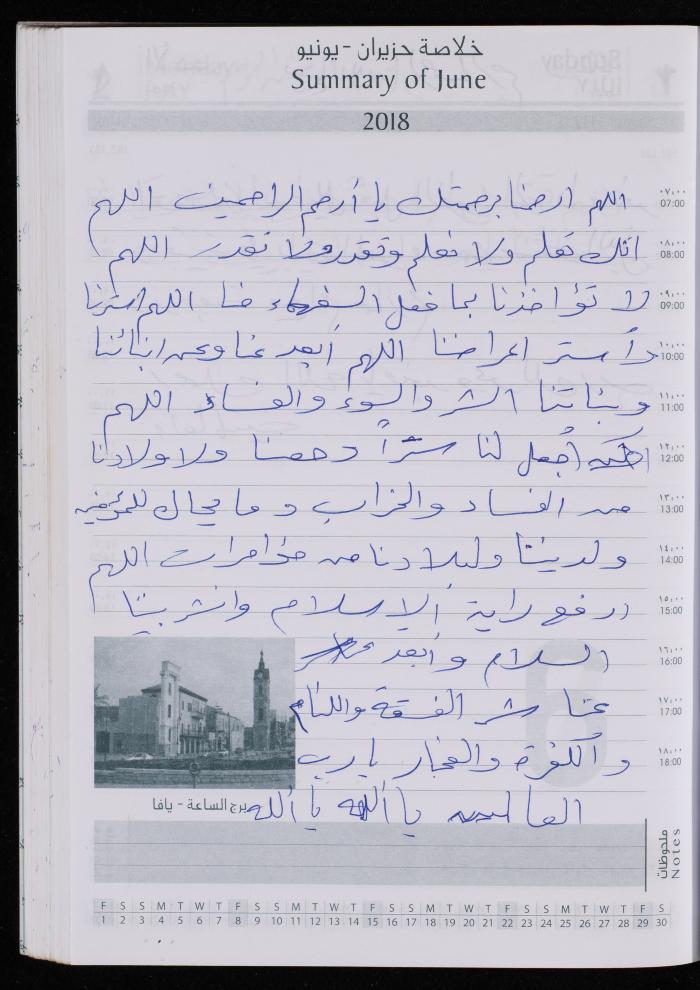 خلاصة حزيران - يونيو
Summary of June
2018
اللهم ارحمنا برحمتك يا أرحم الراحمين اللهم ٠٧:٠٠ 07:00
انك تعلم ولا نعلم وتقدر ولا نقدر اللهم ٠٨:٠٠ 08:00
لا تؤاخذنا بما فعل السفهاء منا اللهم استرنا ٠٩:٠٠ 09:00
وأستر اعراضنا اللهم أبعد عنا وعن ابنائنا ١٠:٠٠ 10:00
وبناتنا الشر والسوء والفساد اللهم ١١:٠٠ 11:00
أجعل لنا ستراً وحصنا ولاولادنا ١٢:٠٠ 12:00
من الفساد والخراب و ما يحاك للمؤمنين ١٣:٠٠ 13:00
ولديننا ولبلادنا من مؤامرات اللهم ١٤:٠٠ 14:00
ارفع راية ألإسلام وانشر بيننا ١٥:٠٠ 15:00
السلام وأبعد ١٦:٠٠ 16:00
عنا شر الفسقة واللئام ١٧:٠٠ 17:00
وألكفرة والفجار يارب ١٨:٠٠ 18:00
العالمين يا ألله يا ألله
برج الساعة - يافا
ملحوظات
Notes
F S S M T W T F S S M T W T F S S M T W T F S S M T W T F S
1 2 3 4 5 6 7 8 9 10 11 12 13 14 15 16 17 18 19 20 21 22 23 24 25 26 27 28 29 30